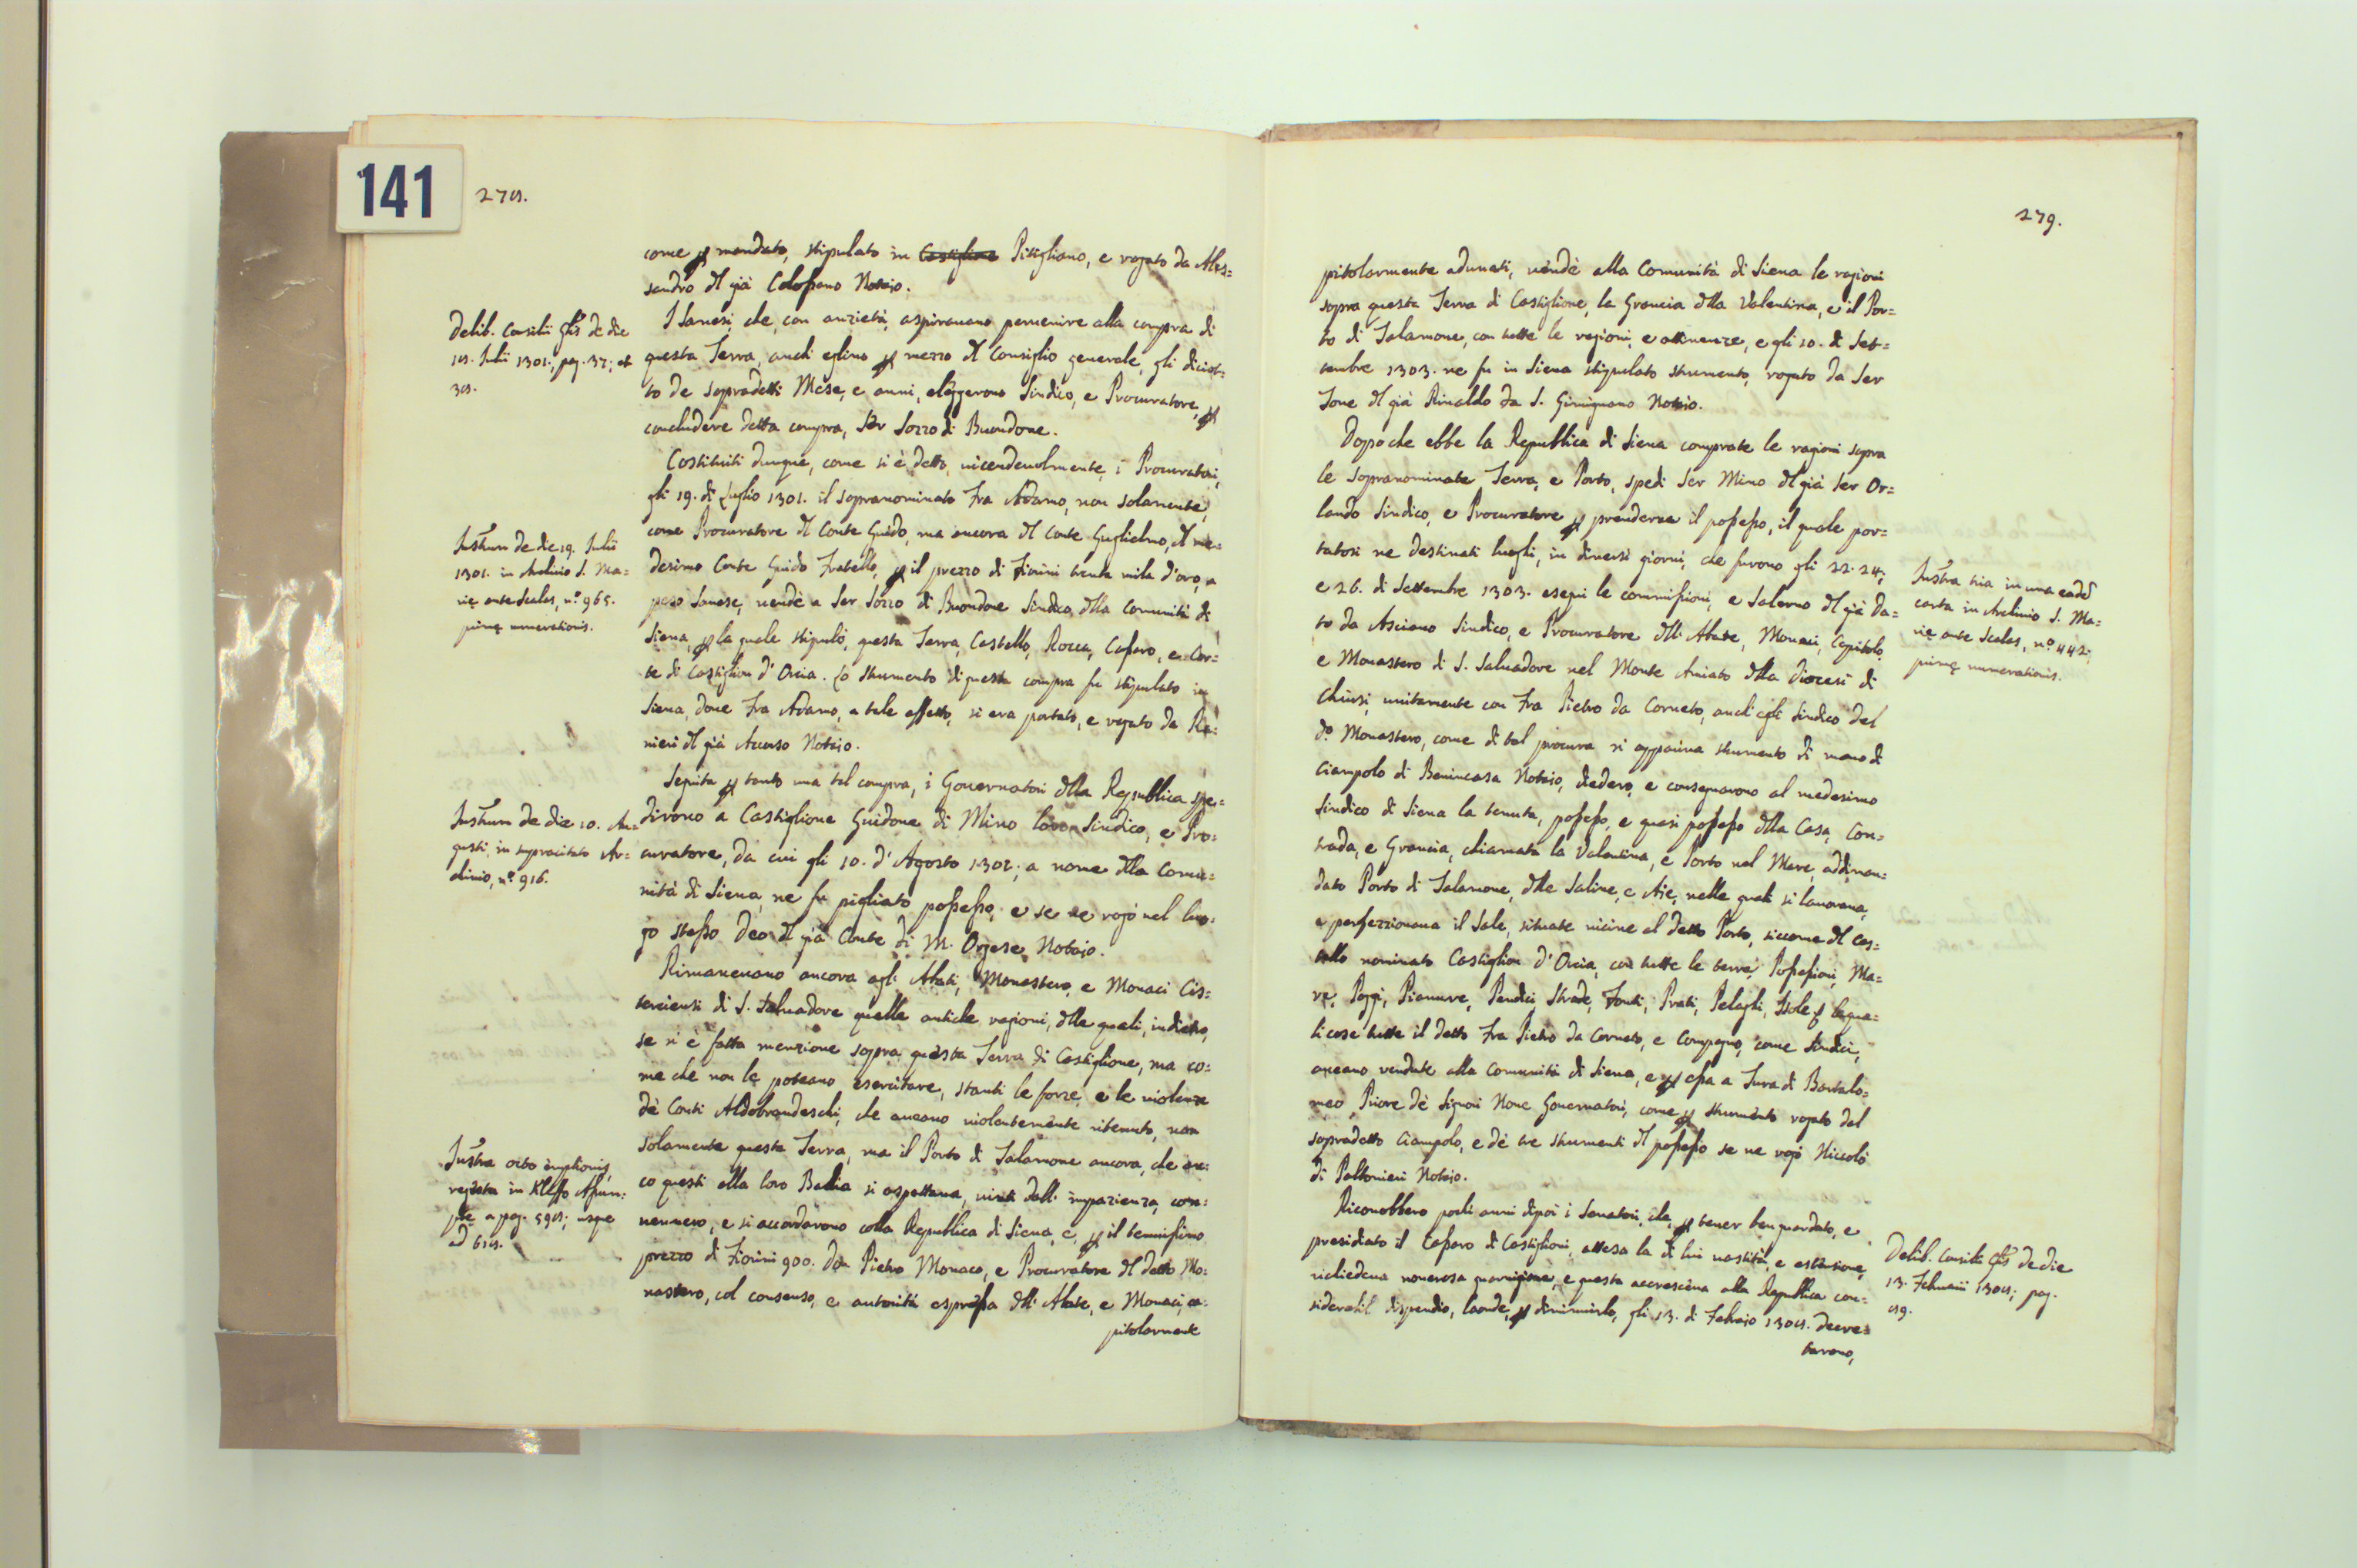 141
278.
come ꝑ mandato, stipulato in Castiglione Pitigliano, e rogato da Ales=
sandro dl già Colofano Notaio.
I Sanesi, che, con anzietà, aspiravano pervenire alla compra di
questa Terra, anch' eglino ꝑ mezzo dl Consiglio generale, gli diciot=
to de sopradetti Mese, e anni, elèggerono Sindico, e Procuratore, ꝑ
concludere detta compra, Ser Sozzo di Buondone.
Costituiti dunque, come si è detto, vicendevolmente, i Procuratori,
gli 19. di Luglio 1301. il sopranominato Fra Adamo, non solamente,
come Procuratore dl Conte Guido, ma ancora dl Conte Guglielmo, dl me=
desimo Conte Guido Fratello, ꝑ il prezzo di Fiorini trenta mila d'oro, a
peso Sanese, vendè a Ser Sozzo di Buondone Sindico dlla Comunità di
Siena, ꝑ la quale stipulò, questa Terra, Castello, Rocca, Cassaro, e Cor=
te di Castiglion d'Orcia. Lo strumento di questa compra fu stipulato in
Siena, dove Fra Adamo, a tale effetto, si era portato, e rogato da Ra=
nieri dl già Accorso Notaio.
Seguita ꝑ tanto una tal compra, i Governatori dlla Republica spe=
dirono a Castiglione Guidone di Mino loro Sindico, e Pro=
curatore, da cui gli 10. d'Agosto 1301; a nome dlla Comu=
nità di Siena, ne fu pigliato possesso, e se ne rogò nel luo=
go stesso Deo dl già Conte di M. Orgese Notaio.
Rimanevano ancora agli Abati, Monastero, e Monaci Cis=
terciensi di S. Salvadore quelle antiche ragioni, dlle quali, indietro,
se n'è fatta menzione sopra questa Terra di Castiglione, ma co=
me che non le poteano esercitare, stanti le forze, e le violenze
dè Conti Aldobrandeschi, che aveano violentemente ritenuto, non
solamente questa Terra, ma il Porto di Talamone ancora, che an=
co questi alla loro Badia si aspettava, vinti dall' impazienza, con=
vennero, e si accordarono colla Republica di Siena, e, ꝑ il tenuissimo
prezzo di Fiorini 900. Don Pietro Monaco, e Procuratore dl detto Mo=
nastero, col consenso, e autorità espressa dll' Abate, e Monaci, ca=
pitolarmente
Delib. Consilii Glis de die
18. Julii 1301; pag. 37; et
38.
Instrum de die 19. Julii
1301. in Archivio S. Ma=
rię ante Scalas, nº. 965.
primę numerationis.
Instrum de die 10. Au=
gusti, in supracitato Ar=
chivio, nº. 916.
Instra octo emptionis,
registra in Kleffo Assum=
ptę a pag. 598; usque
ad 618.
279.
pitolarmente adunati, vendè alla Comunità di Siena le ragioni
sopra questa Terra di Castiglione, la Grancia dlla Valentina, e il Por=
to di Talamone, con tutte le ragioni, e attinenze, e gli 10. di Set=
tembre 1303. ne fu in Siena stipulato strumento, rogato da Ser
Tone dl già Rinaldo da S. Gimignano Notaio.
Dopo che ebbe la Republica di Siena comprate le ragioni sopra
le sopranominate Terra, e Porto, spedì Ser Mino dl già Ser Or=
lando Sindico, e Procuratore ꝑ prenderne il possesso, il quale por=
tatosi ne destinati luoghi, in diversi giorni, che furono gli 22. 24,
e 26. di Settembre 1303. eseguì le commissioni, e Salerno dl già Da=
to da Asciano Sindico, e Procuratore dll' Abate, Monaci, Capitolo,
e Monastero di S. Salvadore nel Monte Amiato dlla Diocesi di
Chiusi, unitamente con Fra Pietro da Corneto, anch' egli Sindico del
do. Monastero, come di tal procura ri appariva strumento di mano di
Ciampolo di Benincasa Notaio, diedero, e consegnarono al medesimo
Sindico di Siena la tenuta, possesso, e quasi possesso dlla Casa, Con=
trada, e Grancia, chiamata la Valentina, e Porto nel Mare, addiman=
dato Porto di Talamone, dlle Saline, e Aie, nelle quali si lavorava,
e perfezzionava il Sale, situate vicine al detto Porto, siccome dl Cas=
tello nominato Castiglion d'Orcia, con tutte le terre, Possessioni, Ma=
re, Poggi, Pianure, Pendici, Strade, Fonti, Prati, Pelaghi, Isole, le qua=
li cose tutte il detto Fra Pietro da Corneto, e Compagno, come Sindici,
aveano vendute alla Comunità di Siena, e ꝑ essa a Tura di Bartolo=
meo Priore dè Signori Nove Governatori, come ꝑ strumento rogato dal
sopradetto Ciampolo, e dè tre strumenti dl possesso se ne rogò Niccolò
di Paltonieri Notaio.
Riconobbero pochi anni dipoi i Senatori, che, ꝑ tener ben guardato, e
presidiato il Cassaro di Castiglioni, attesa la di lui vastità, e estensione,
richiedeva nonerosa guarnigione, e questa accresceva alla Republica con=
siderabil dispendio, laonde, ꝑ diminuirlo, gli 13. di Febraio 1308. decre=
tarono,
Instra tria in una eadẽ
carta in Archivio S. Ma=
rię ante Scalas, nº. 442;
primę numerationis.
Delib. Consilii Glis de die
13. Februarii 1308; pag.
89.